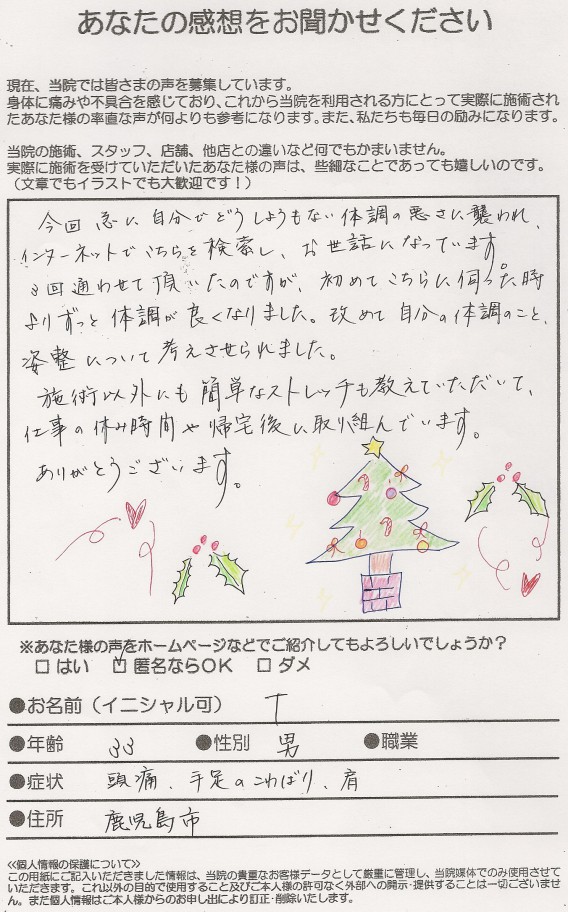 あなたの感想をお聞かせください
現在、当院では皆さまの声を募集しています。
身体に痛みや不具合を感じており、これから当院を利用される方にとって実際に施術され
たあなた様の率直な声が何よりも参考になります。また、私たちも毎日の励みになります。
当院の施術、スタッフ、店舗、他店との違いなど何でもかまいません。
実際に施術を受けていただいたあなた様の声は、些細なことであっても嬉しいのです。
（文章でもイラストでも大歓迎です！）
今回 急に自分でどうしようもない体調の悪さに襲われ、
インターネットでこちらを検索し、お世話になっています。
3回通わせて頂いたのですが、初めてこちらに伺った時
よりずっと体調が良くなりました。改めて自分の体調のこと、
姿整について考えさせられました。
施術以外にも簡単なストレッチも教えていただいて、
仕事の休み時間や帰宅後に取り組んでいます。
ありがとうございます。
※あなた様の声をホームページなどでご紹介してもよろしいでしょうか？
□ はい ☑ 匿名ならOK □ ダメ
●お名前（イニシャル可） T
●年齢 33 ●性別 男 ●職業
●症状 頭痛、手足のこわばり、肩
●住所 鹿児島市
<<個人情報の保護について>>
この用紙にご記入いただきました情報は、当院の貴重なお客様データとして厳重に管理し、当院媒体でのみ使用させて
いただきます。これ以外の目的で使用すること及びご本人様の許可なく外部への開示・提供することは一切ございませ
ん。また個人情報はご本人様からのお申し出により訂正・削除いたします。